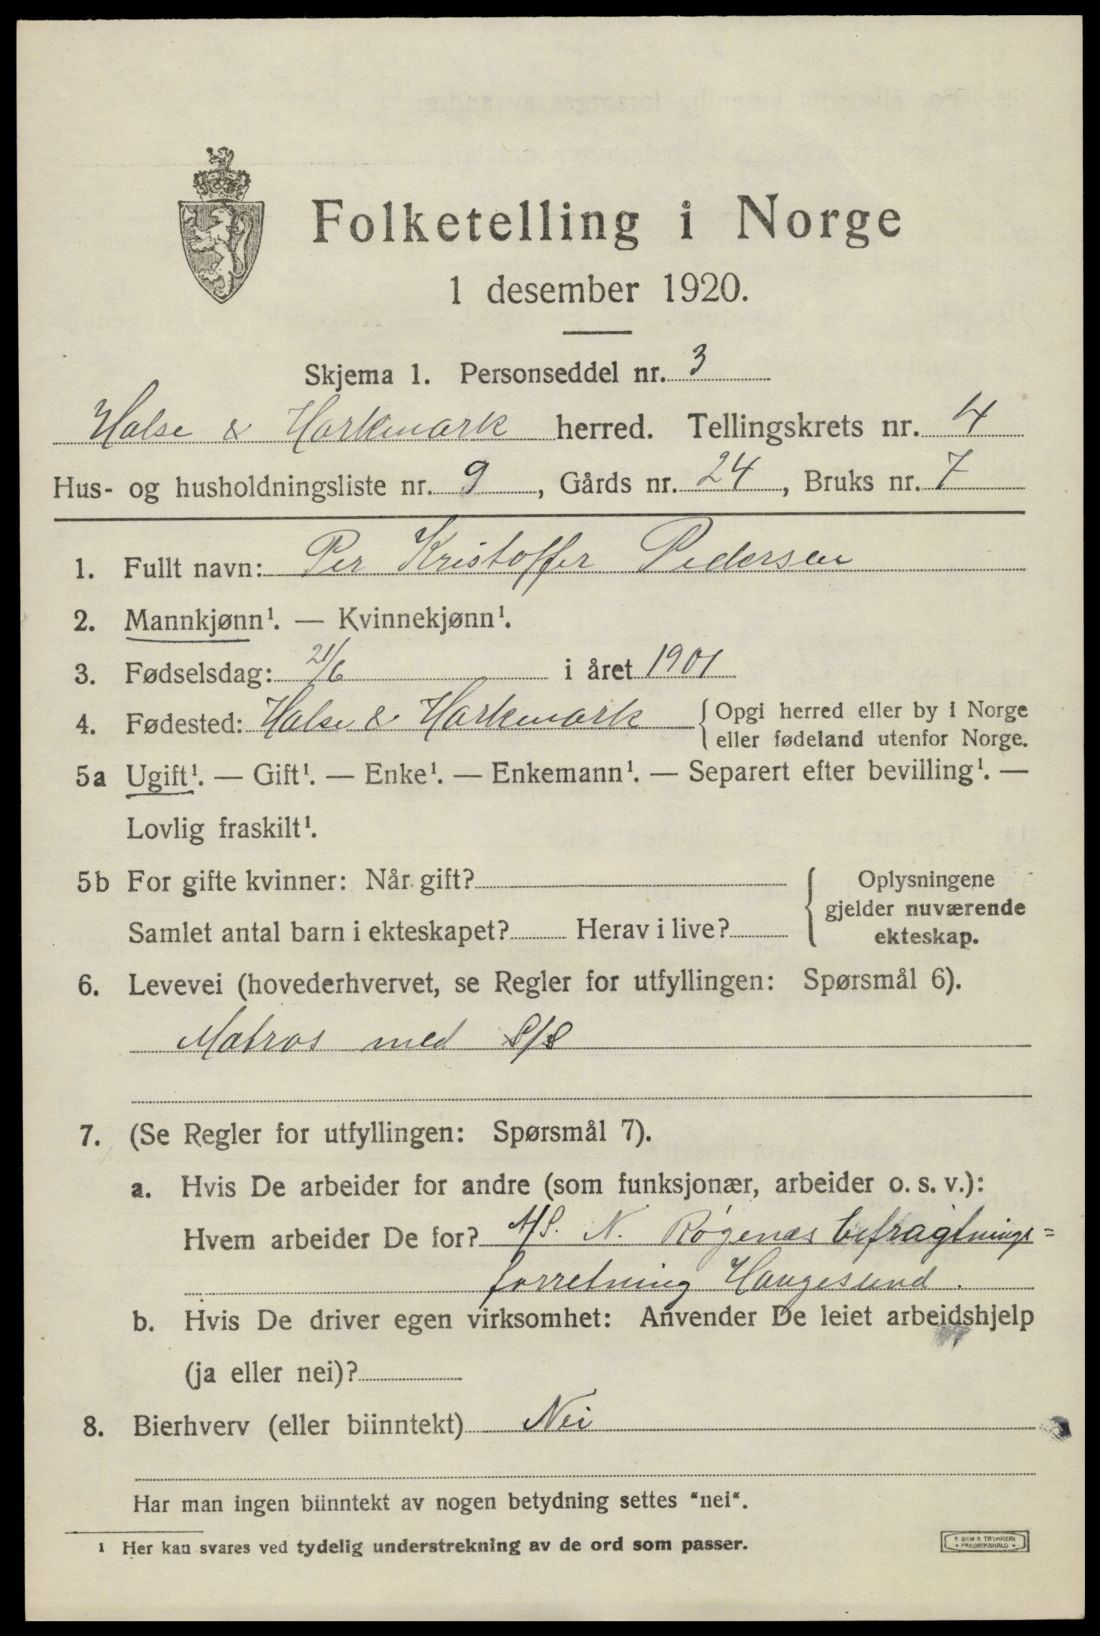 Folketelling i Norge
1 desember 1920.
Skjema 1. Personseddel nr. 3
Halse & Harkmark herred. Tellingskrets nr. 4
Hus- og husholdningsliste nr. 9, Gårds nr. 24, Bruks nr. 7
1. Fullt navn: Per Kristoffer Pedersen
2. Mannkjønn¹. — Kvinnekjønn¹.
3. Fødselsdag: 21/6 i året 1901
4. Fødested: Halse & Harkmark { Opgi herred eller by i Norge
eller fødeland utenfor Norge.
5a Ugift¹. — Gift¹. — Enke¹. — Enkemann¹. — Separert efter bevilling¹. —
Lovlig fraskilt¹.
5b For gifte kvinner: Når gift?
Samlet antal barn i ekteskapet? Herav i live?
{ Oplysningene
gjelder nuværende
ekteskap.
6. Levevei (hovederhvervet, se Regler for utfyllingen: Spørsmål 6).
Matros med S/S
7. (Se Regler for utfyllingen: Spørsmål 7).
a. Hvis De arbeider for andre (som funksjonær, arbeider o. s. v.):
Hvem arbeider De for? A/S. N. Røgenæs befragtnings=
forretning Haugesund.
b. Hvis De driver egen virksomhet: Anvender De leiet arbeidshjelp
(ja eller nei)?
8. Bierhverv (eller biinntekt) Nei
Har man ingen biinntekt av nogen betydning settes "nei".
¹ Her kan svares ved tydelig understrekning av de ord som passer.
TRYKKERI
FREDRIKSHALD